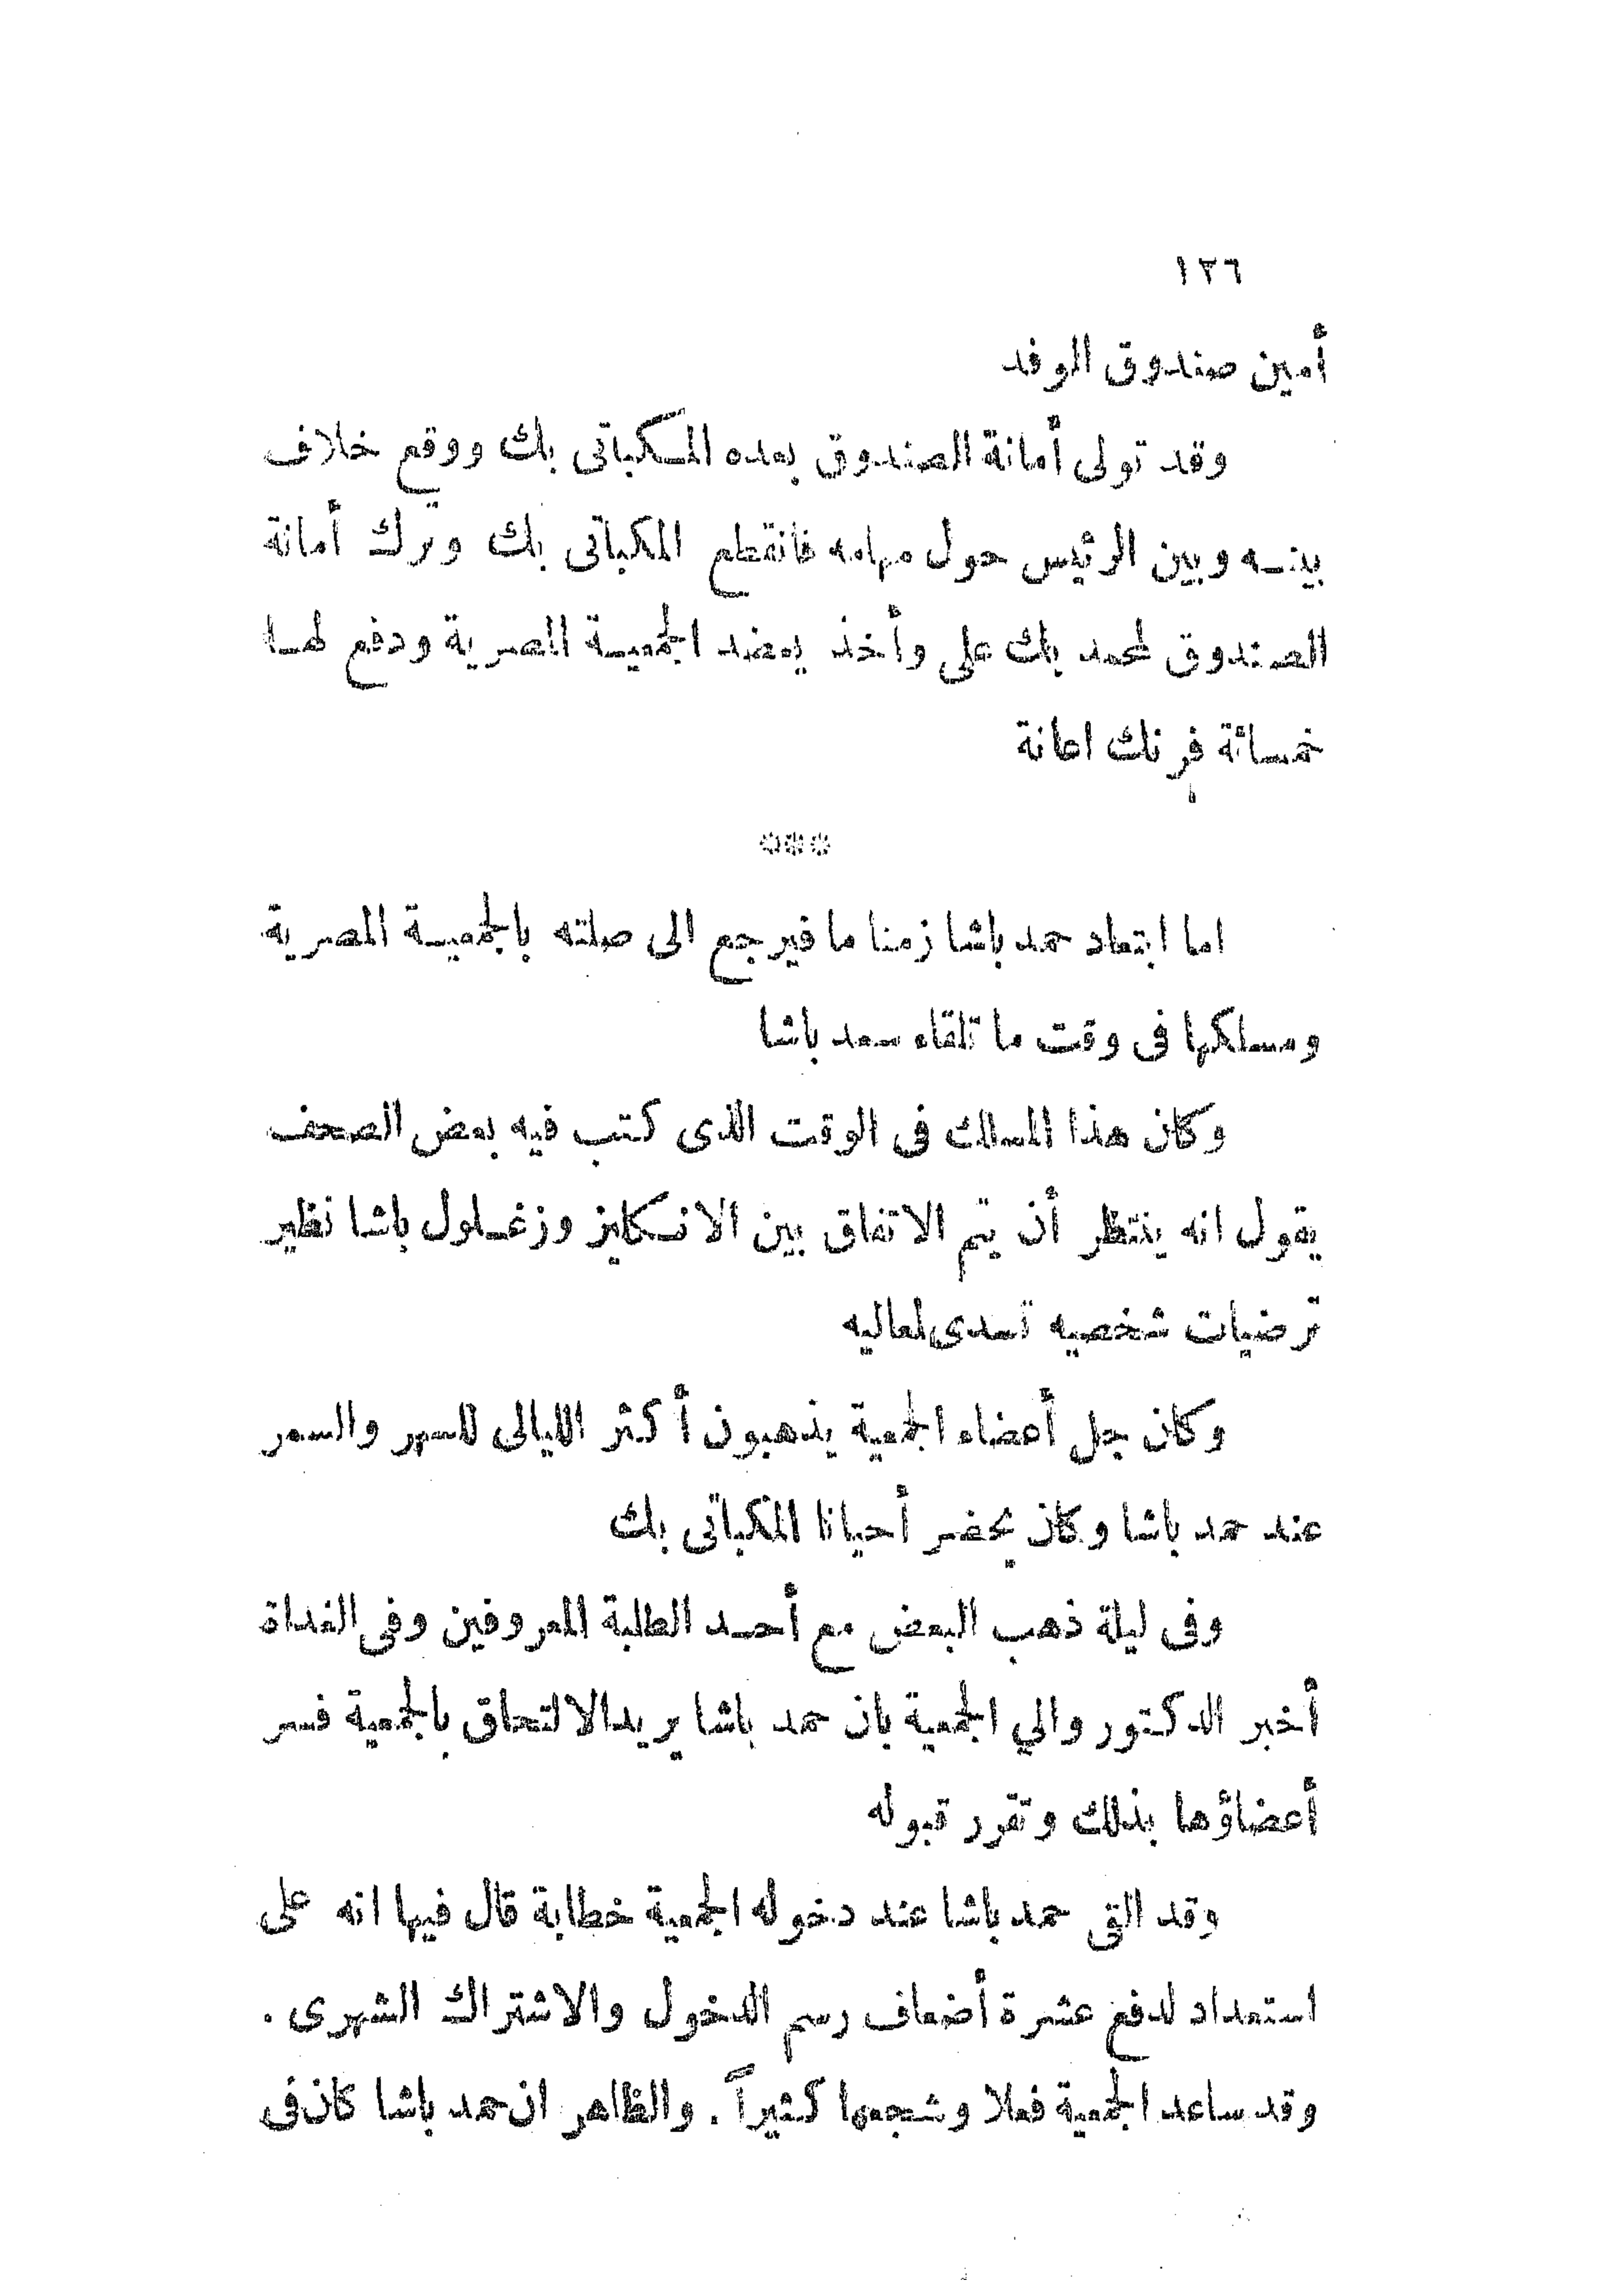 ١٢٦
أمين صندوق الوفد
وقد تولى أمانة الصندوق بعده المكباتى بك ووقع خلاف
بينه وبين الرئيس حول مهامه فانقطع المكباتى بك وترك أمانة
الصندوق لمحمد بك على وأخذ يعضد الجمعية المصرية ودفع لها
خمسائة فرنك اعانة
***
اما ابتعاد حمد باشا زمنا ما فيرجع الى صلته بالجمعية المصرية
ومسلكها فى وقت ما تلقاء سعد باشا
وكان هذا المسلك فى الوقت الذى كتب فيه بعض الصحف
يقول انه ينتظر أن يتم الاتفاق بين الانكليز وزغلول باشا نظير
ترضيات شخصيه تسدى لمعاليه
وكان جل أعضاء الجمعية يذهبون أكثر الليالى للسهر والسمر
عند حمد باشا وكان يحضر أحيانا المكباتى بك
وفى ليلة ذهب البعض مع أحد الطلبة المعروفين وفى الغداة
أخبر الدكتور والي الجمعية بان حمد باشا يريد الالتحاق بالجمعية فسر
أعضاؤها بذلك وتقرر قبوله
وقد القى حمد باشا عند دخوله الجمعية خطابة قال فيها انه على
استعداد لدفع عشرة أضعاف رسم الدخول والاشتراك الشهرى .
وقد ساعد الجمعية فعلا وشجعها كثيراً . والظاهر ان حمد باشا كان فى